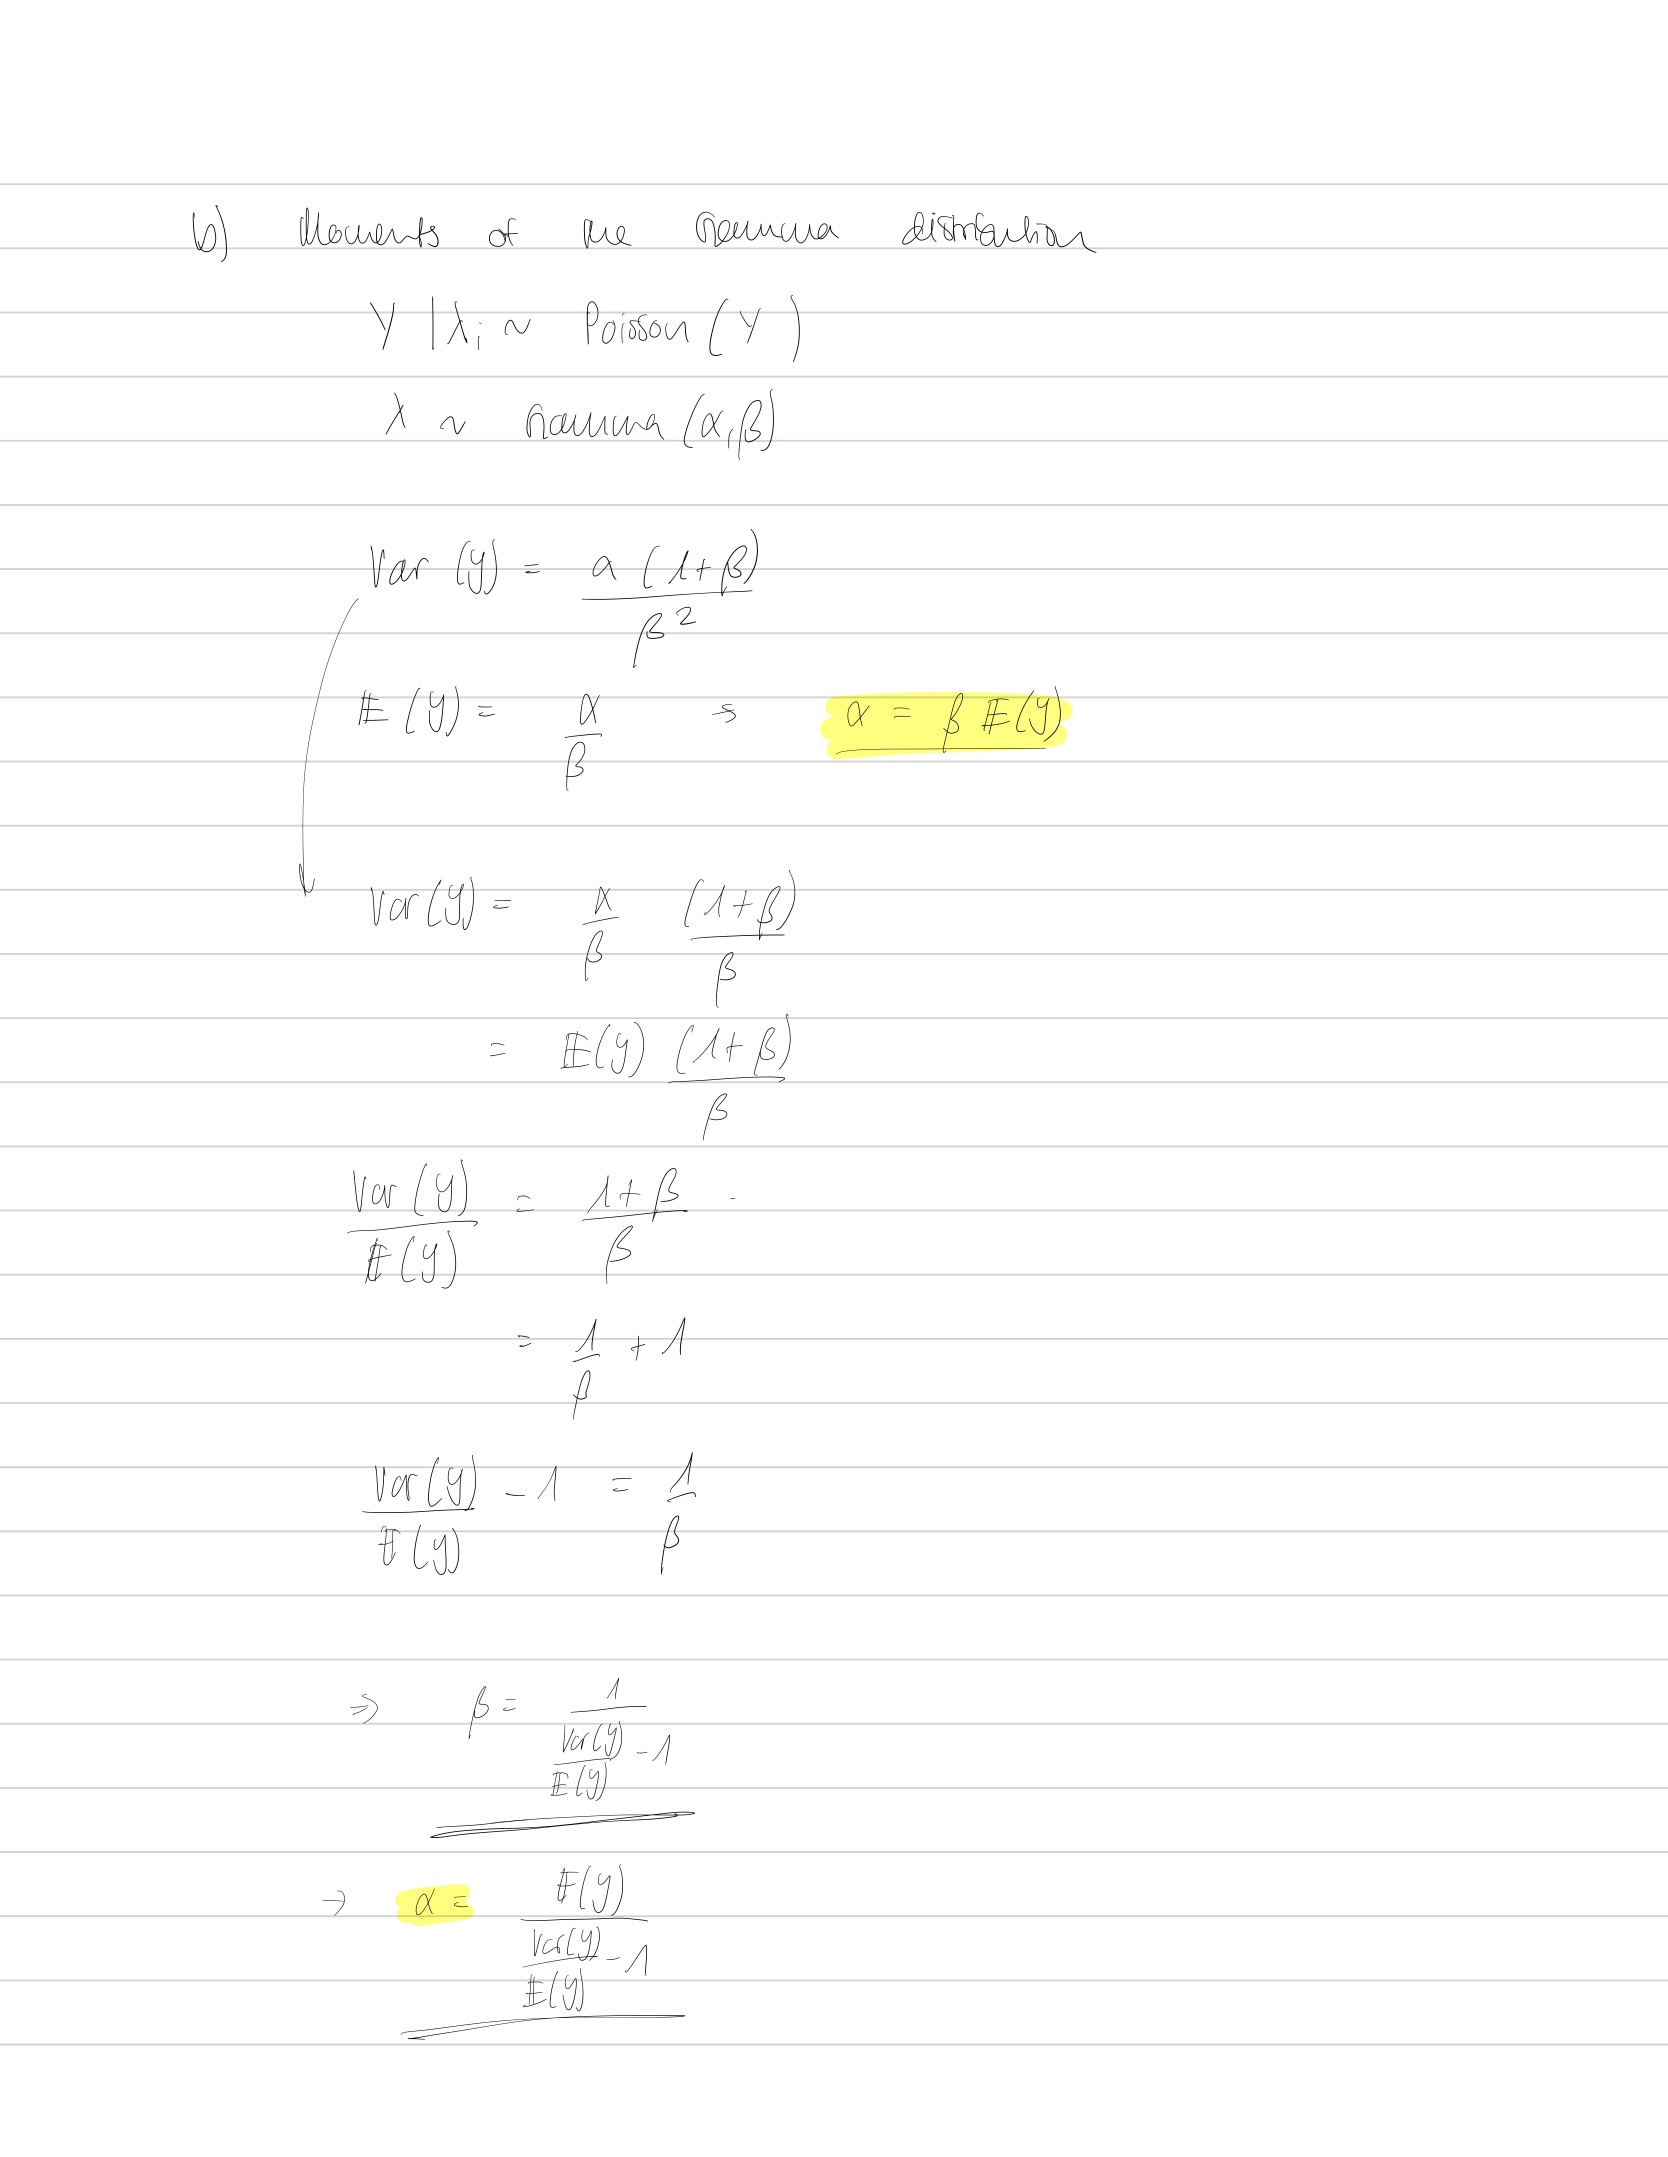 b) Moments of the Gamma distribution
Y | λi ~ Poisson (Y)
λ ~ Gamma (α, β)
Var (y) = a (1+β) / β²
𝔼 (y) = α / β ⇒ α = β 𝔼(y)
Var(y) = α / β (1+β) / β
= 𝔼(y) (1+β) / β
Var(y) / 𝔼(y) = 1+β / β
= 1 / β + 1
Var(y) / 𝔼(y) - 1 = 1 / β
⇒ β = 1 / (Var(y) / 𝔼(y) - 1)
→ α = 𝔼(y) / (Var(y) / 𝔼(y) - 1)